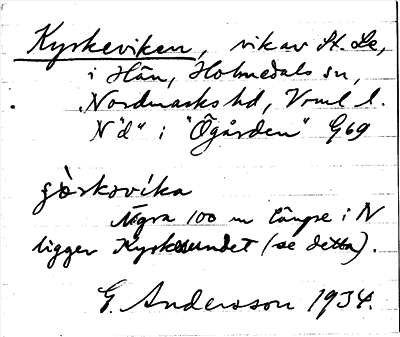 Kyrkeviken, vik av St. Le,
i Hån, Holmedals sn,
Nordmarks hd, Vrml. l.
N "d" i "Ögården" G69
Några 100 m längre i N
ligger Kyrkesundet (se detta).
G. Andersson 1934.